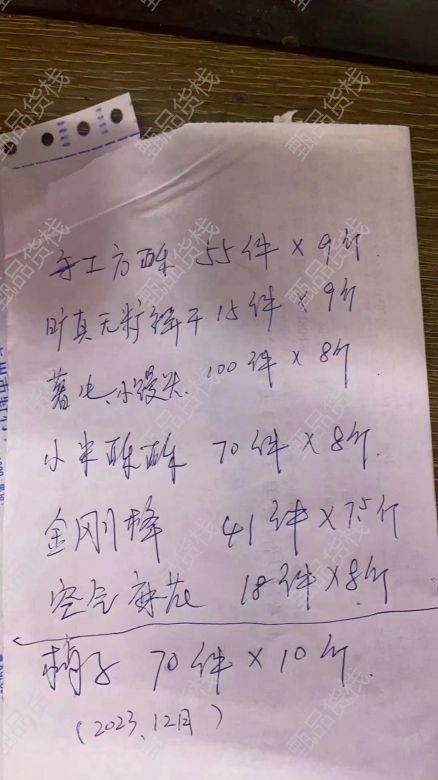 手工方酥 55件×9斤
旷真无籽饼干 15件×9斤
薯七、小馒头 100件×8斤
小米酥酥 70件×8斤.
金刚棒 41件×7.5斤
空气麻花 18件×8斤
梢子 70件×10斤.
(2023.12月)
甄品货栈